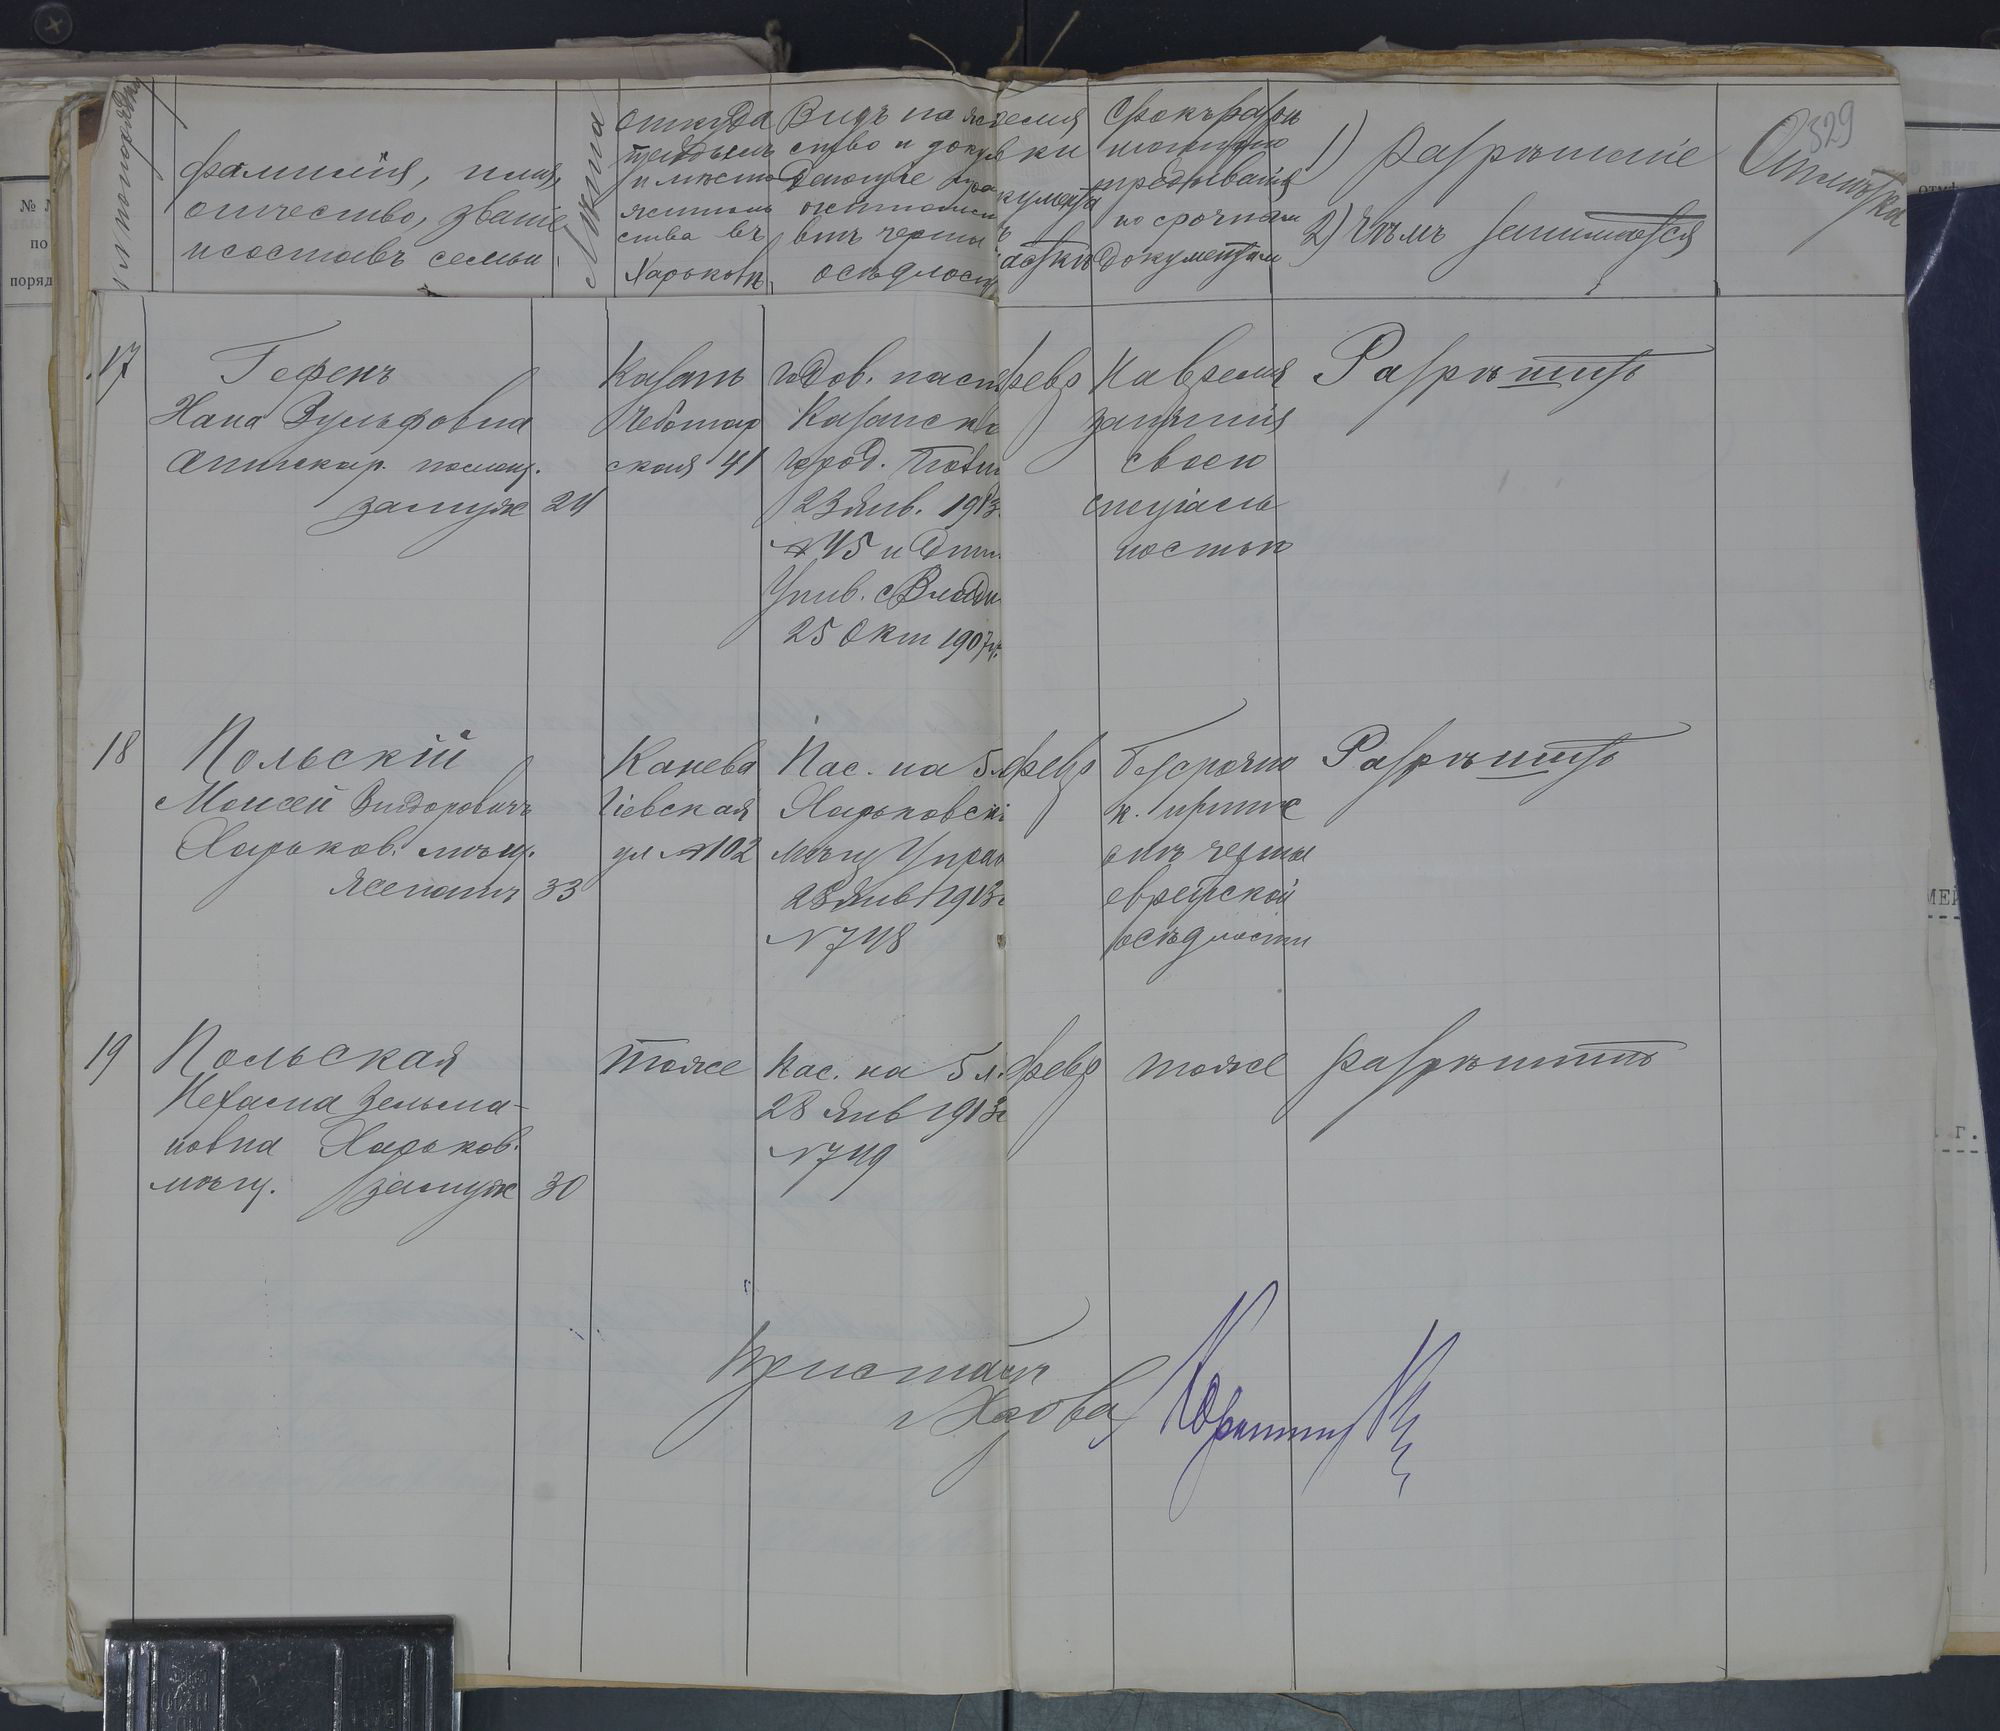 329
№ по порядку
Фамилія, имя,
отчество, званіе
и составъ семьи
Лѣта
Откуда
прибылъ
и мѣсто
жительства въ
Харьковѣ
Видъ на жительство и доку
дающіе право
жительства
внѣ черты
осѣдлости
Срокъ разрѣ
шеннаго
пребыванія
по срочнымъ
документам
1) Разрѣшеніе
2) Чѣмъ занимается
Отмѣтка
17
Гефенъ
Хана Вульфовна
Аптекар. помощ.
замуж 24
Казань
Чеботар
ская 41
Казанск
город.
23 Янв. 1913
№ 45 и Дип
Унив. Св Влади
25 Окт 1907 г.
февр
На время
занятія
своею
спеціаль
ностью
Разрѣшить
18
Польскій
Моисей Вигдоровичъ
Харьков. мѣщ.
Женатъ 33
Канева
Кіевская
ул № 102
Пас. на 5 л
Харьковск
мѣщ Управ
28 Янв 1913 г
№ 748
февр
Безсрочно
внѣ черты
еврейской
осѣдлости
Разрѣшить
19
Польская
Нехама Зельма-
новна Харьков.
мѣщ. замуж 30
тоже
Пас. на 5 л.
28 Янв 1913 г
№ 749
февр
тоже
разрѣшить
Приставъ
№ №
по
поряд
г.